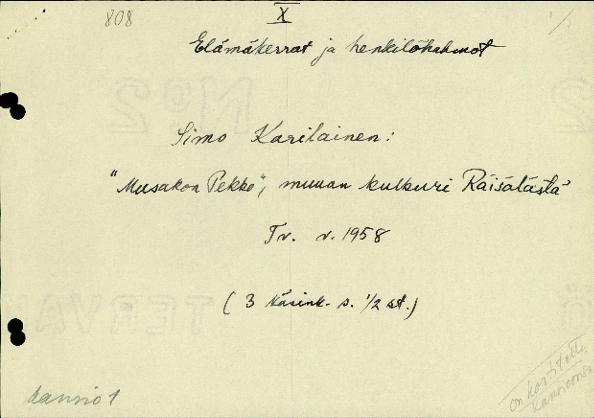 808
X
Elämäkerrat ja henkilöhahmot
Simo Karilainen:
"Musakon Pekko", muuan kulkuri Räisälästä
Tv. v. 1958
(3 käsink. s. 1/2 st.)
kansio 1
on kortitettu